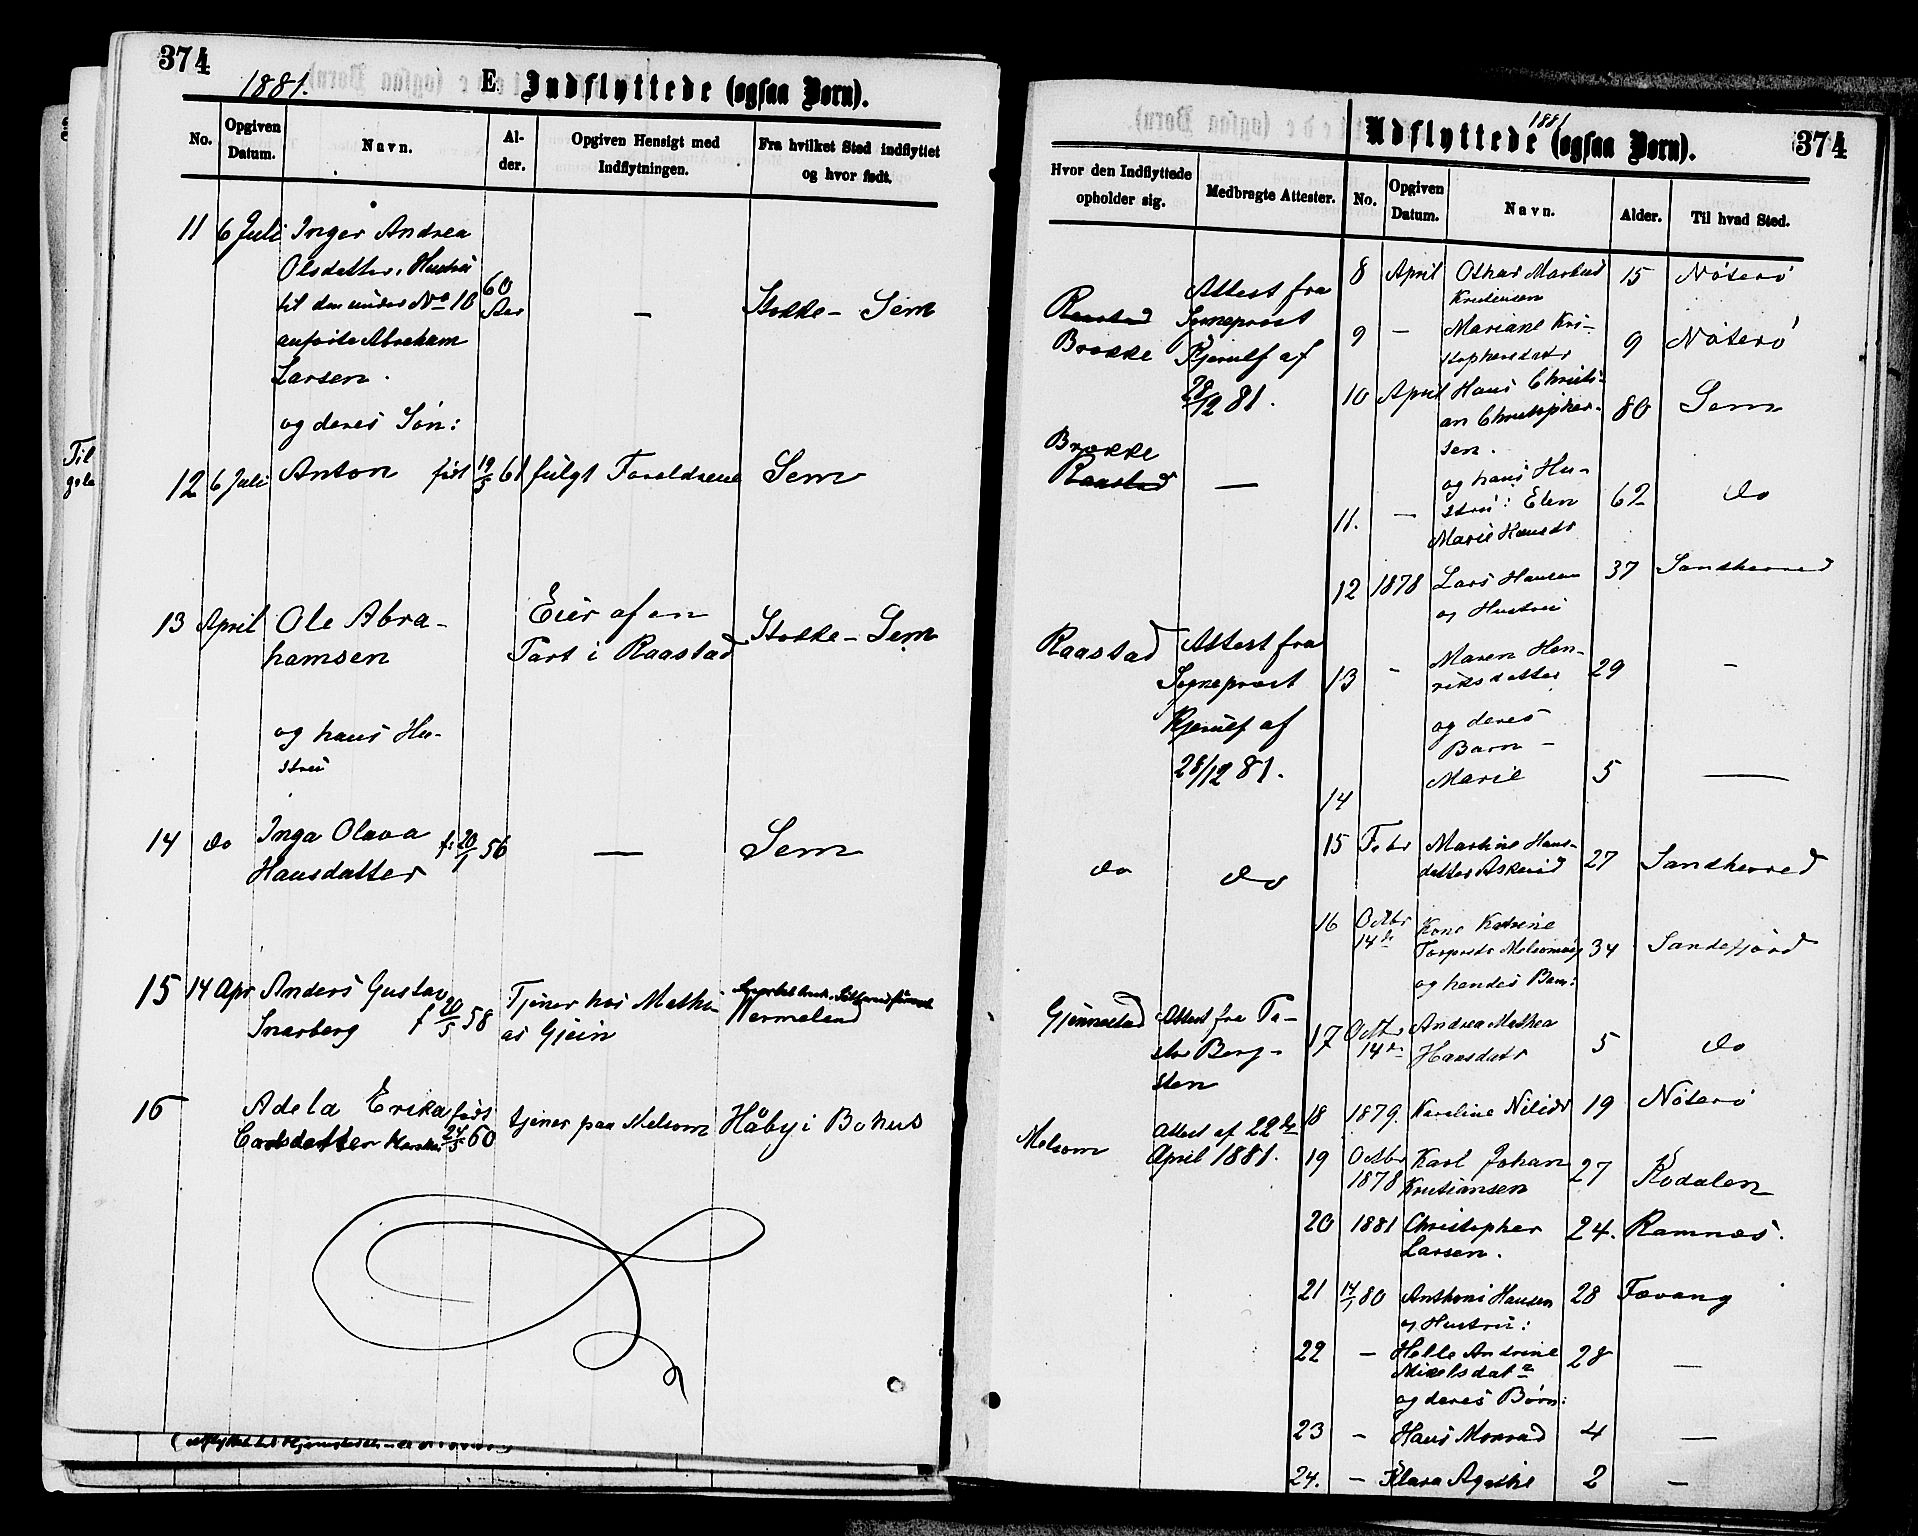 374
1881.
E. Indflyttede (ogsaa Børn).
No.
Opgiven
Datum.
Navn.
Al-
der.
Opgiven Hensigt med
Indflytningen.
Fra hvilket Sted indflyttet
og hvor født.
11 6 Juli Inger Andrea
Olsdatter, Hustru
til den under No 10
anførte Abraham
Larsen.
60
Aar
— Stokke - Sem
og deres Søn:
12 6 Juli Anton født 19/5 61 fulgt Forældrene Sem
13 April Ole Abra-
hamsen
Eier af en
Part i Raastad
Stokke - Sem
og hans Hu-
stru
14 do Inga Olava
Hansdatter
f. 20/1 56
— Sem
15 14 Apr Anders Gustav
Snarberg f 20/5 58
Tjener hos Mathi-
as Gjein
Vermeland
16 Adela Erika født
Carlsdatter 24/5 60
tjener paa Melsom Håby i Bohus
Til
1881
Udflyttede (ogsaa Børn).
374
Hvor den Indflyttede
opholder sig.
Medbragte Attester.
No.
Opgiven
Datum.
Navn.
Alder.
Til hvad Sted.
Raastad
Brække
Attest fra
Sogneprost
Kjerulf af
28/12 81.
Brække
Raastad —
Raastad Attest fra
Sogneprost
Kjerulf af
28/12 81.
do do
Gjennestad Attest fra Pa-
stor Berg-
sten
Melsom Attest af 22de
April 1881.
8 April Othar Markus
Kristensen
15 Nøterø
9 — Mariane Kri-
stophersdatr
9 Nøterø
10 April Hans Christi-
an Christopher-
sen.
80 Sem
og hans Hu-
11. — stru: Elen
Marie Hansdr
62 do
12 1878 Lars Hansen
og Hustru
37 Sandherred
13 - Maren Hen-
riksdatter
29 -
og deres
Barn -
14 Marie 5 —
15 Febr Martine Hans-
datter Askerød
27 Sandherred
16 Octbr
14de
Kone Katrine
Melsomvig
34 Sandefjord
og hendes Barn:
17 Octbr
14de
Andrea Mathea
Hansdatr
5 do
18 1879. Karoline Nilsdr 19 Nøterø
19 Octbr
1878
Karl Johan
Kristiansen
27 Kodalen
20 1881 Christopher
Larsen.
24. Ramnæs.
21 14/1 80 Anthoni Hansen
og Hustru:
28 Fævang
22 — Helle Andrine
Mikelsdatr
28 —
og deres Børn:
23 - Hans Monrad 4 —
24. - Klara Agathe 2 —